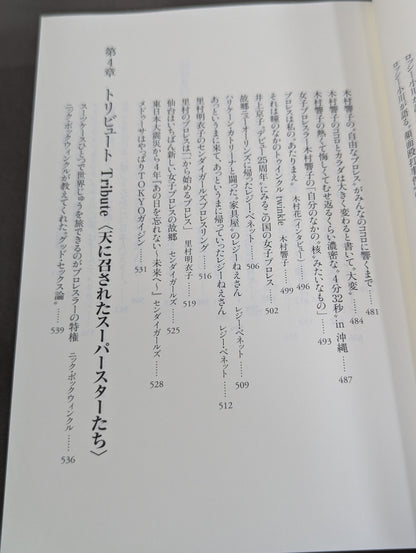 木村響子の“自由なプロレス”がみんなのココロに響くまで …… 481
木村響子のココロとカラダは大きく変わると書いて“大変” …… 484
木村響子の熱くて悔しくてむせ返るくらい濃密な“4分32秒”in 沖縄 …… 487
女子プロレスラー木村響子の「自分のなかの“核”みたいなもの」 …… 493
プロレスは私の“あたりまえ” 木村花〈インタビュー〉 …… 496
それは瞳のなかのトゥインクル twinkle 木村響子 …… 499
井上京子、“デビュー25周年”にみるこの国の女子プロレス …… 502
故郷ニューオーリンズに帰ったレジー・ベネット …… 506
ハリケーン・カトリーナと闘った“家具屋”のレジーねえさん レジー・ベネット …… 509
あっというまに来て、あっというまに帰っていったレジーねえさん レジー・ベネット …… 512
里村明衣子のセンダイガールズプロレスリング …… 516
里村のプロレスは「一から始めるプロレス」 里村明衣子 …… 519
仙台はいちばん新しい女子プロレスの故郷 センダイガールズ …… 525
東日本大震災から4年「あの日を忘れない〜未来へ〜」センダイガールズ …… 528
メドゥーサはやっぱりTOKYOガイジン …… 531
第4章 トリビュート Tribute〈天に召されたスーパースターたち〉
スーツケースひとつで世界じゅうを旅できるのがプロレスラーの特権 ニック・ボックウィンクル …… 536
ニック・ボックウィンクルが教えてくれた“グッド・セックス論” …… 539